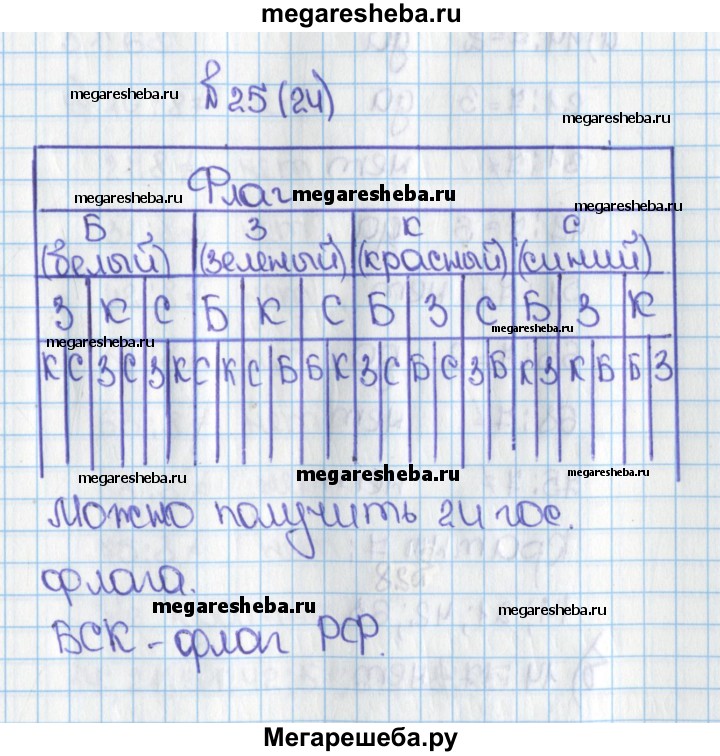 megaresheba.ru
№25(24)
megaresheba.ru
megaresheba.ru
Флаг
megaresheba.ru
megaresheba.ru
megaresheba.ru
Б З К С
(белый) (зеленый) (красный) (синий)
З К С Б К С Б З С Б З К
megaresheba.ru
megaresheba.ru
К С З С З К С К С Б Б К З С Б С З Б К З К Б Б З
megaresheba.ru
megaresheba.ru
megaresheba.ru
Можно получить 24 гос.
флага.
megaresheba.ru
megaresheba.ru
БСК - флаг РФ.
Мегарешеба.ру